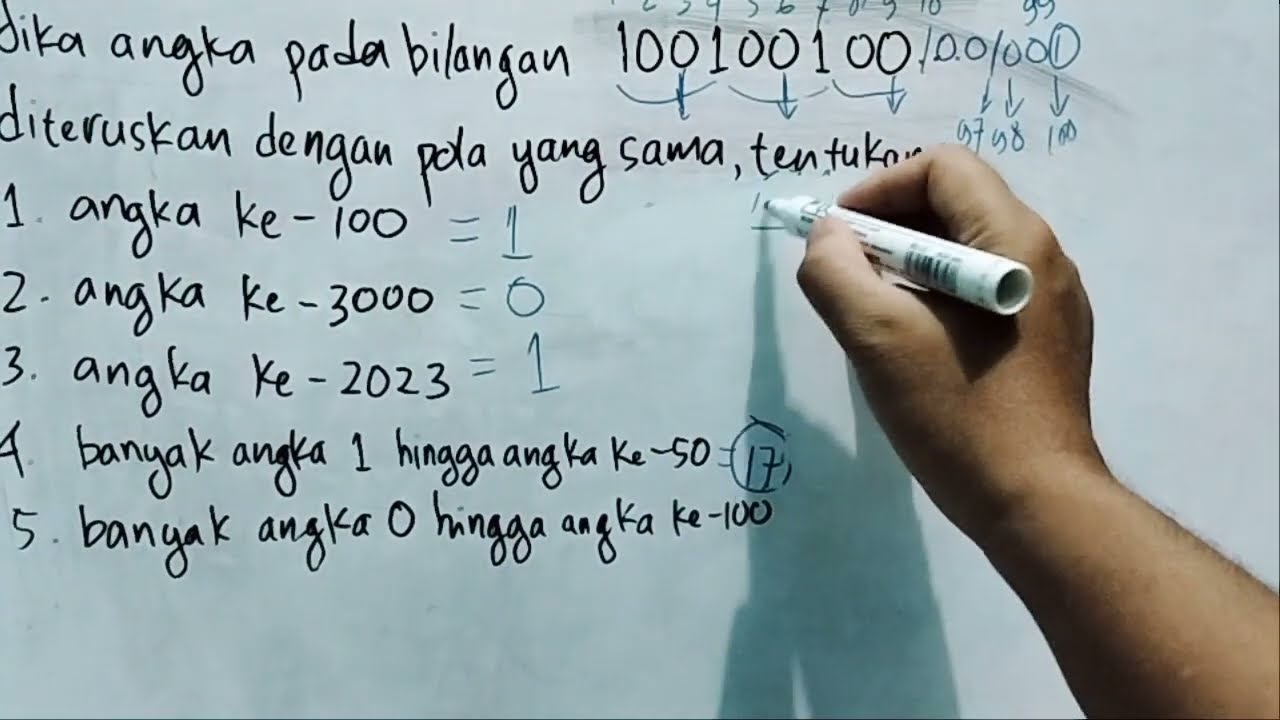 2 3 4 5 6 7 8 9 10 99
Jika angka pada bilangan 100100100100100①
97 98 100
diteruskan dengan pola yang sama, tentukan
1. angka ke-100 = 1
2. angka ke-3000 = 0
3. angka ke-2023 = 1
4. banyak angka 1 hingga angka ke-50 = 17,
5. banyak angka 0 hingga angka ke-100